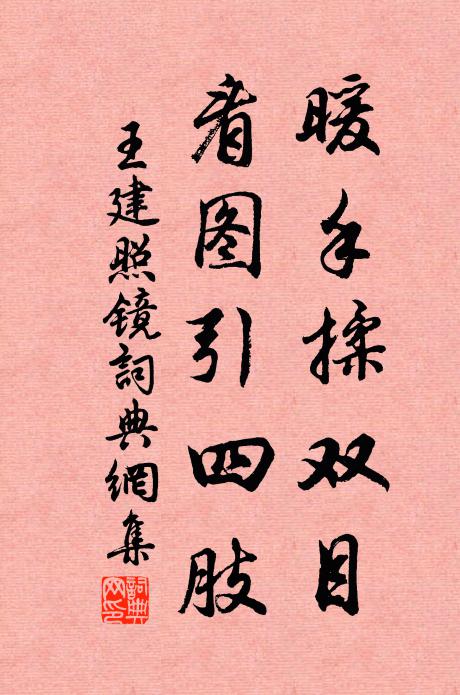 暖手揉双目
看图引四肢
王建照镜詞典網集
詞典網印